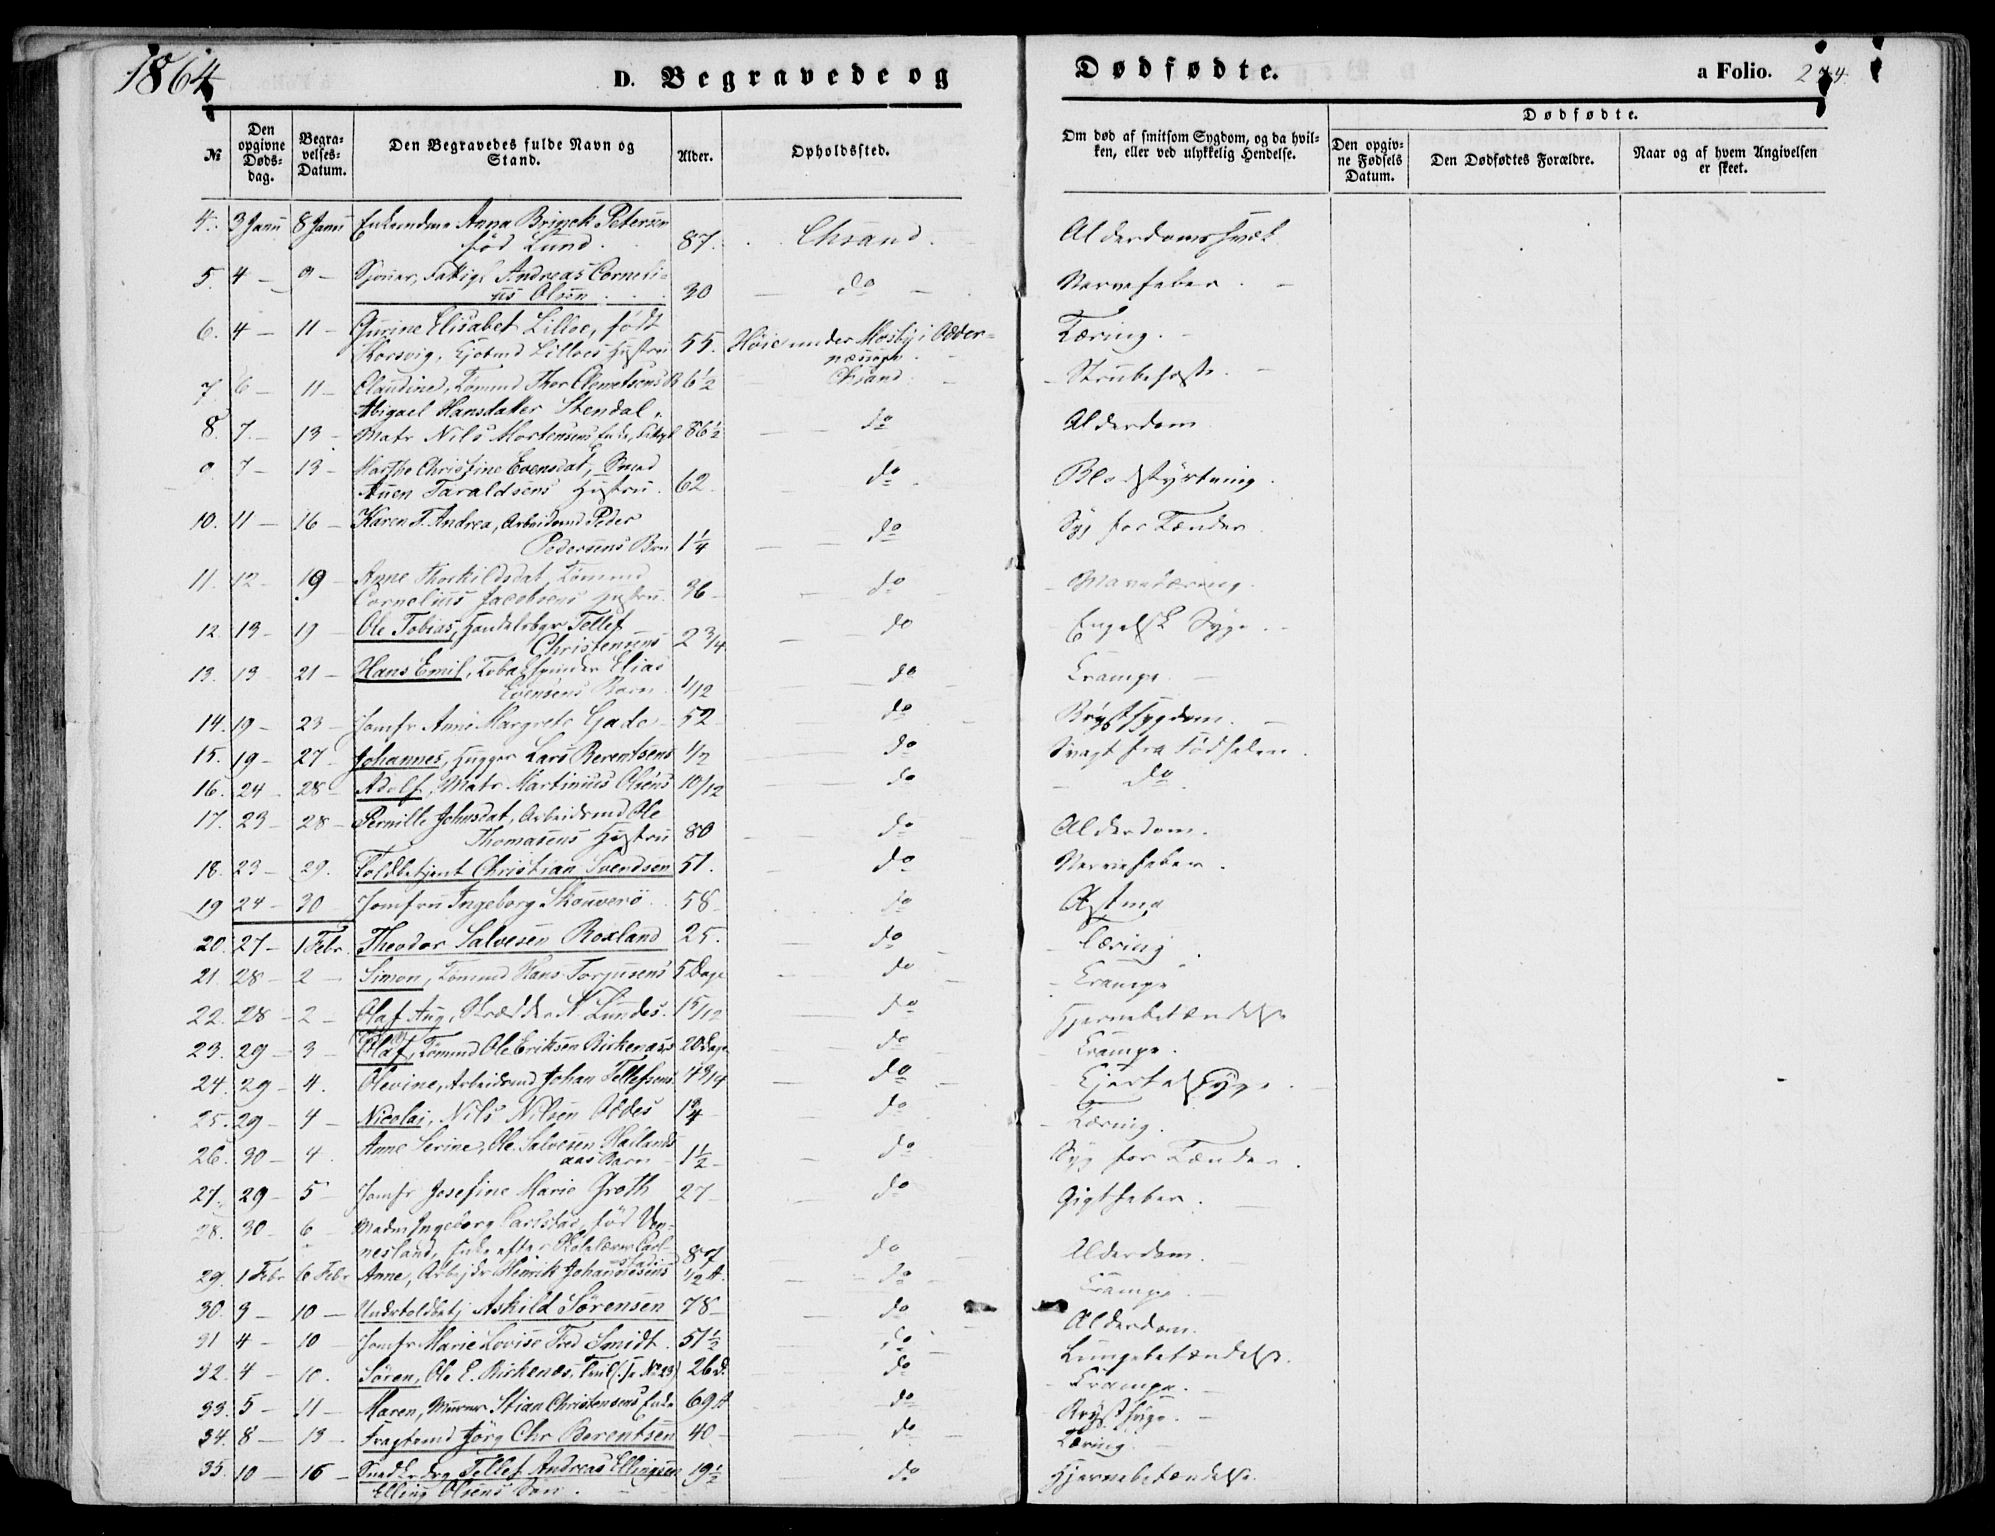 1864
D. Begravede og Dødfødte.
a Folio. 274.
№
Den opgivne Døds-dag.
Begra-velses-Datum.
Den Begravedes fulde Navn og Stand.
Alder.
Opholdssted.
Om død af smitsom Sygdom, og da hvil-ken, eller ved ulykkelig Hendelse.
Dødfødte.
Den opgiv-ne Fødsels Datum.
Den Dødfødtes Forældre.
Naar og af hvem Angivelsen er skeet.
4. 3 Janu 8 Janu Enkemadame Anna Brinck Petersen
fød Lund. 87. Chsand. Alderdomssvæk
5. 4 – 9 – Andreas Corneli-
us Olsen 30 – do – Nervefeber. –
6. 4 – 11 – Gurine Elisabet Lilloe, født
Korsvig, Lilloes Hustru 55. Høie under Mosby i Odder-
næssogn. Tæring. –
7. 6 – 11 – Claudine, Tømmd Thor Clemetsens B 6½ Chsand. – Strubehoste. –
8. 7. – 13 – Abigael Hansdatter Stendal,
Matr Nils Mortensens Enke, 86½ – do Alderdom
9 7 – 13 – Marthe Christine Evensdat, Smed
Auen Taraldsens Hustru. 62. – do. Blodstyrtning.
10. 11 – 16 – Karen T. Andrea, Arbeidsmd Peder
Pedersens Brn 1¼ – do Syg for Tænder.
11. 12 – 19 – Anne Thorkildsdat, Tømmd
Cornelius Jacobsens Hustru. 36 – do – Mavetæring.
12 13 – 19 – Ole Tobias, Handelsbgr Tellef
Christensens 2 3/4 – do – Engelsk Syge. –
13. 13 – 21 – Hans Emil, Tobakspinder Elias
Evensens Barn. 1/12 – do Krampe. –
14. 19 – 23 – Jomfr Anne Margrete Gade – 52 – do – Brystsygdom. –
15. 19 – 27 – Johannes, Hugger Lars Berentsens 1/2 – do Svagt fra Fødselen.
16. 24 – 28 – Adolf, Matr Martinius Olsens 10/12 – do – do.
17. 23 – 28 – Pernille Johnsdat, Arbeidsmd Ole
Thomasens Hustru 80 – do Alderdom.
18. 23 – 29. Toldbetjent Christian Svendsen 51. do Nervefeber.
19 24 – 30 – Jomfru Ingeborg Skouverö. 58 – do Astma
20. 27 – 1 Febr. Theodor Salvesen Roxland 25. do – Tæring.
21. 28 – 2 – Simon, Tømmd Hans Torjusens 5 Dage – do – Krampe
22. 28 – 2 – Olaf Aug, Skrædder N. Lundes. 15/12 do Hjernebetændelse
23. 29 – 3 – Olaf, Tømmd Ole Eriksen Birkenæs 20 Dage do – Krampe.
24. 29 – 4. Olevine, Arbeidsmd Johan Tellefsens 4 3/4 – do – Kjertelsyge. –
25. 29 – 4 – Nicolai, Nils Nilsen Oddes 1¾ – do – Tæring.
26. 30 – 4. Anne Serine, Ole Salvesen Hailands
aas Barn – 1½ – do. Syg for Tænder.
27. 29 – 5 – Jomfr Josefine Marie Groth 27 – do Gigtfeber.
28. 30 – 6 – Madm Ingeborg Carlstad, fød Ven-
nesland, Enke efter Skolelærer Carl-
stad 87 do – Alderdom.
29. 1 Febr 6 Febr Anne, Arbejdr Henrik Johannesens 1/2 A. – do – Krampe. –
30. 3 – 10 – Undertoldbetj Askild Sörensen 78 – do Alderdom.
31 4 – 10 Jomfr Marie Lovise Fred Smidt. 51½ – do – Lungebetændelse.
32. 4 – 10. Sören, Ole E. Birkenæs, Tvil (se No 23) 26 D. do – Krampe. –
33. 5 – 11 – Maren, Murer Stian Christensens Enke 69 A do – Brystsyge. –
34. 8 – 13 – Fragtemd Jörg Chr Berentsen 40 – do – Tæring. –
35. 10 – 16 – Tellef Andreas Ellingsen
Elling Olsens Søn. 19½ do Hjernebetændelse.